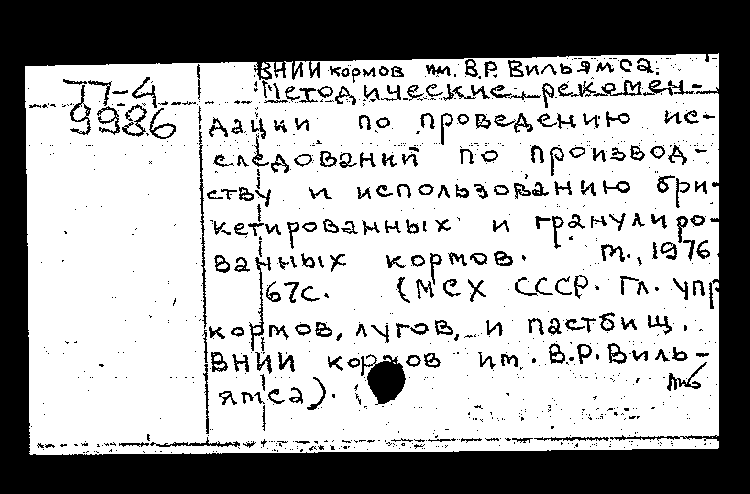 ВНИИ кормов им. В.Р. Вильямса.
П-4
Методические рекомен-
9986
дации по проведению ис-
следований по производ-
ству и использованию бри-
кетированных и гранулиро-
ванных кормов. М., 1976.
67с. (МСХ СССР. Гл. упр
кормов, лугов, и пастбищ.
ВНИИ кормов им. В.Р. Виль-
ямса).